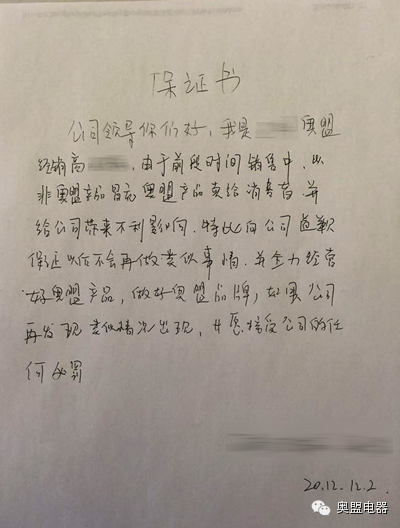 保证书
公司领导你们好，我是 奥盟
经销商 ，由于前段时间销售中，以
非奥盟产品冒充奥盟产品卖给消费者并
给公司带来不利影响，特此向公司道歉
保证以后不会再做类似事情，并全力经营
好奥盟产品，做好奥盟品牌，如果公司
再发现类似情况出现，甘愿接受公司的任
何处罚
20.12.12.2
奥盟电器